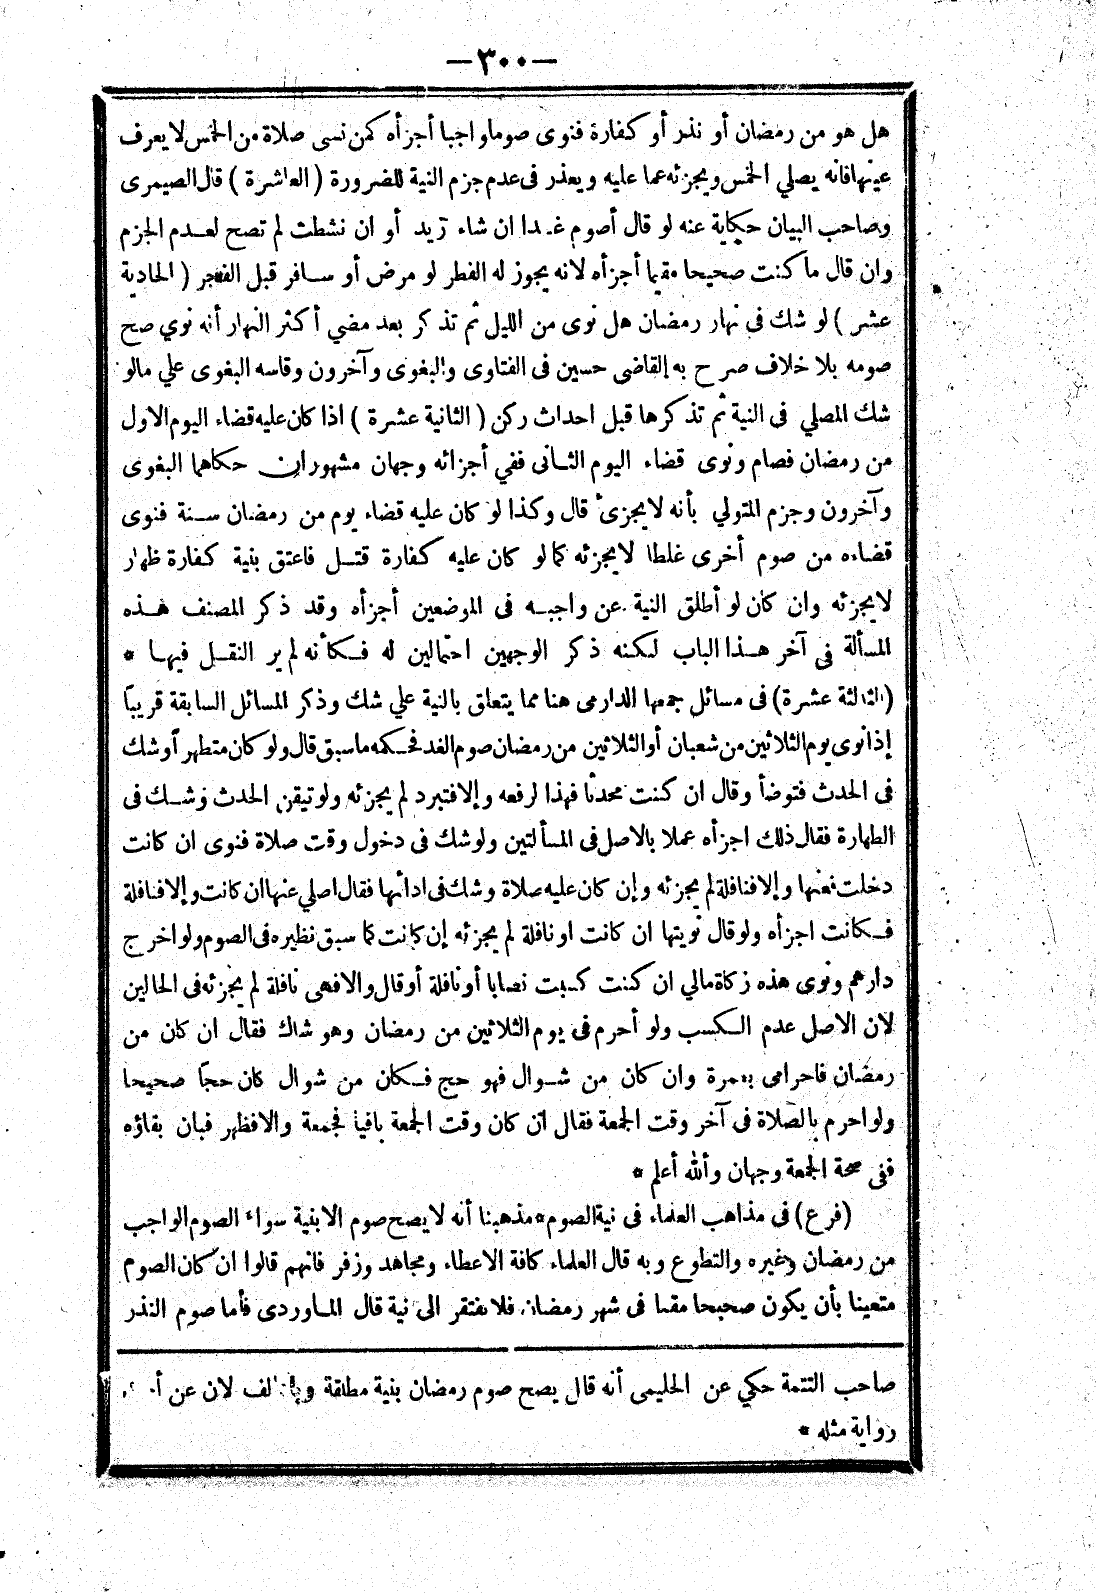 —٣٠٠—
هل هو من رمضان أو نذر أو كفارة فنوى صوما واجبا أجزأه كمن نسى صلاة من الخمس لا يعرف
عينها فانه يصلي الخمس ويجزئه عما عليه ويعذر فى عدم جزم النية للضرورة (العاشرة) قال الصيمرى
وصاحب البيان حكاية عنه لو قال أصوم غدا ان شاء زيد أو ان نشطت لم تصح لعدم الجزم
وان قال ما كنت صحيحا مقيما أجزأه لانه يجوز له الفطر لو مرض أو سافر قبل الفجر (الحادية
عشر) لو شك فى نهار رمضان هل نوى من الليل ثم تذكر بعد مضي أكثر النهار أنه نوي صح
صومه بلا خلاف صرح به القاضى حسين فى الفتاوى والبغوى وآخرون وقاسه البغوى علي مالو
شك المصلي فى النية ثم تذكرها قبل احداث ركن (الثانية عشرة) اذا كان عليه قضاء اليوم الاول
من رمضان فصام ونوى قضاء اليوم الثانى ففي أجزائه وجهان مشهوران حكاهما البغوى
وآخرون وجزم المتولي بأنه لا يجزئ قال وكذا لو كان عليه قضاء يوم من رمضان سنة فنوى
قضاءه من صوم أخرى غلطا لا يجزئه كما لو كان عليه كفارة قتل فاعتق بنية كفارة ظهار
لا يجزئه وان كان لو أطلق النية عن واجبه فى الموضعين أجزأه وقد ذكر المصنف هذه
المسألة فى آخر هذا الباب لكنه ذكر الوجهين احتمالين له فكأنه لم ير النقل فيها *
(الثالثة عشرة) فى مسائل جمعها الدارمى هنا مما يتعلق بالنية علي شك وذكر المسائل السابقة قريبًا
إذا نوى يوم الثلاثين من شعبان أو الثلاثين من رمضان صوم الغد فحكمه ما سبق قال ولو كان متطهر أو شك
فى الحدث فتوضأ وقال ان كنت محدثا فهذا لرفعه وإلا فتبرد لم يجزئه ولو تيقن الحدث وشك فى
الطهارة فقال ذلك اجزأه عملا بالاصل فى المسألتين ولو شك فى دخول وقت صلاة فنوى ان كانت
دخلت فعنها وإلا فنافلة لم يجزئه وإن كان عليه صلاة وشك فى ادائها فقال اصلي عنها ان كانت وإلا فنافلة
فكانت اجزأه ولو قال نويتها ان كانت او نافلة لم يجزئه إن كانت كما سبق نظيره فى الصوم ولو اخرج
دارهم ونوى هذه زكاة مالي ان كنت كسبت نصابا أو نافلة أو قال والا فهى نافلة لم يجزئه فى الحالين
لان الاصل عدم الكسب ولو أحرم فى يوم الثلاثين من رمضان وهو شاك فقال ان كان من
رمضان فاحرامى بعمرة وان كان من شوال فهو حج فكان من شوال كان حجًا صحيحا
ولو احرم بالصلاة فى آخر وقت الجمعة فقال ان كان وقت الجمعة باقيا فجمعة والا فظهر فبان بقاؤه
ففى صحة الجمعة وجهان والله أعلم *
(فرع) فى مذاهب العلماء فى نية الصوم * مذهبنا أنه لا يصح صوم الا بنية سواء الصوم الواجب
من رمضان وغيره والتطوع وبه قال العلماء كافة الا عطاء ومجاهد وزفر فانهم قالوا ان كان الصوم
متعينا بأن يكون صحيحا مقيما فى شهر رمضان فلا يفتقر الى نية قال الماوردى فأما صوم النذر
صاحب التتمة حكي عن الحليمى أنه قال يصح صوم رمضان بنية مطلقة لان عن
رواية مثله *